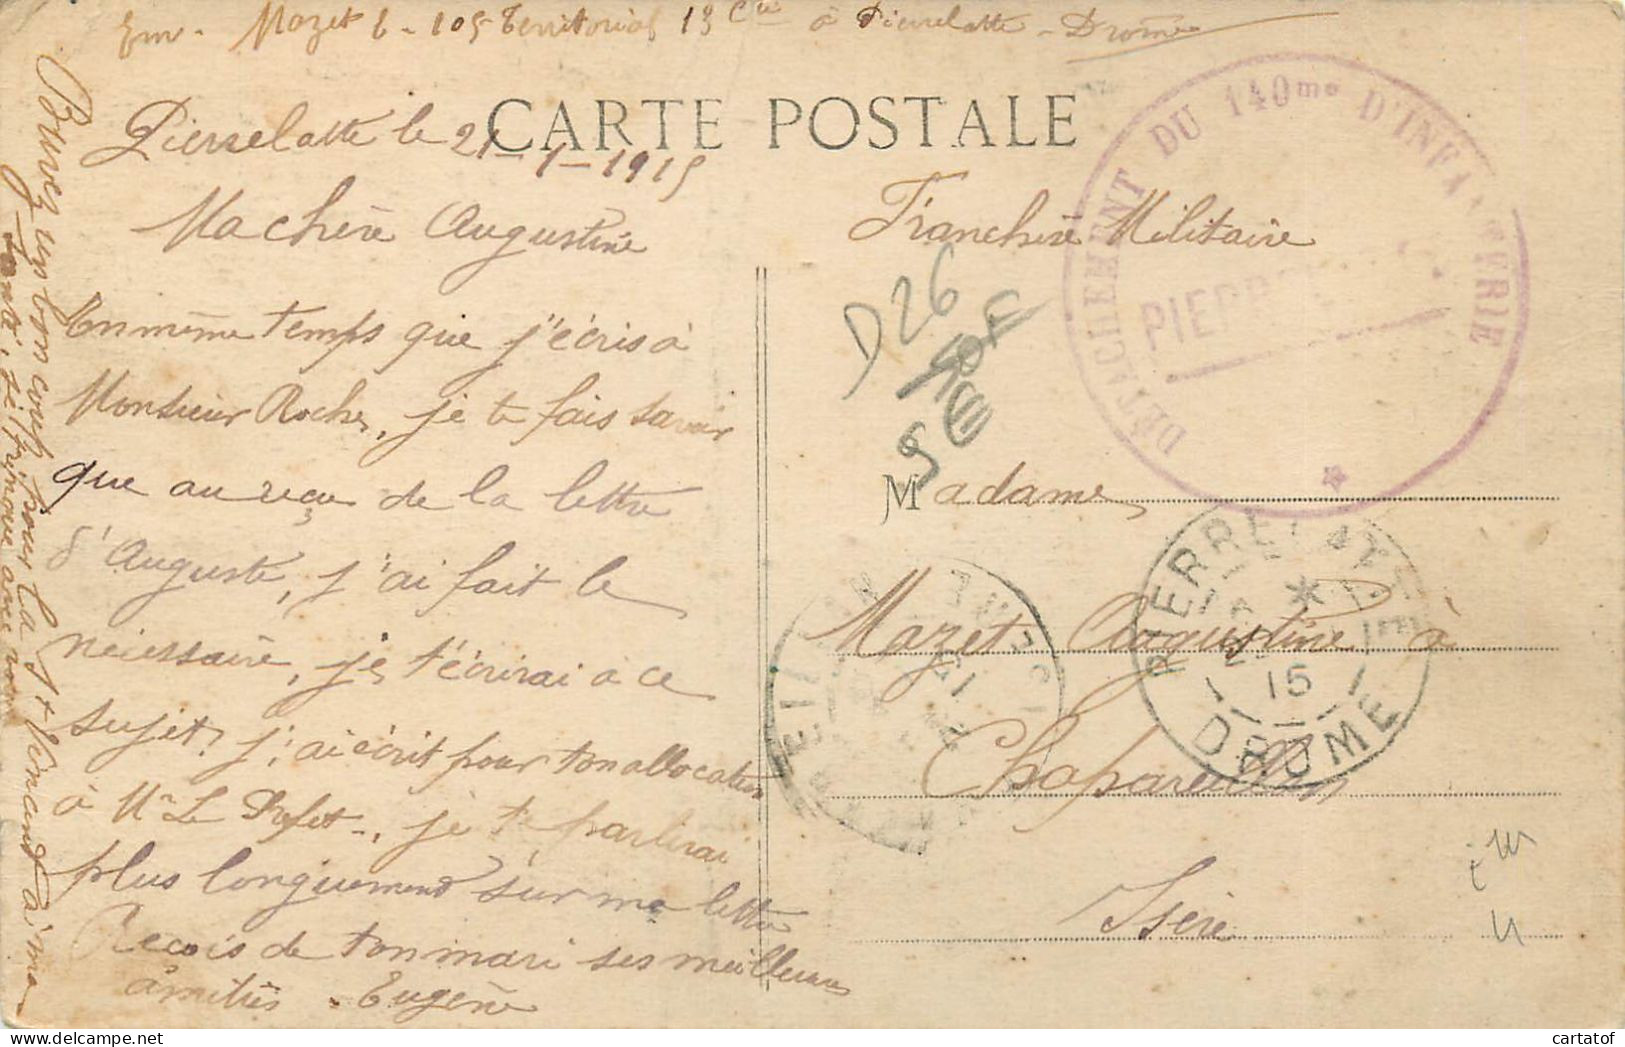 Em. Mazet E - 105 Territorial 13 Cie à Pierrelatte - Drôme
CARTE POSTALE
Pierrelatte le 21-1-1915
Ma chère Augustine
En même temps que j'écris à
Monsieur Roche, je te fais savoir
que au reçu de la lettre
d'Auguste, j'ai fait le
nécessaire, je t'écrirai à ce
sujet, j'ai écrit pour ton allocation
à Mr Le Préfet, je te parlerai
plus longuement sur ma lettre
Reçois de ton mari ses meilleures
amitiés. Eugène
Buvez un bon coup pour la St Vincent à ma
santé, je trinque avec vous
Franchise Militaire
DÉTACHEMENT DU 140me D'INFANTERIE
PIERRE
D26
5€
Madame
Mazet Augustine à
Chapareillan
Isère
PIERRELATTE
15
DROME
cartatof